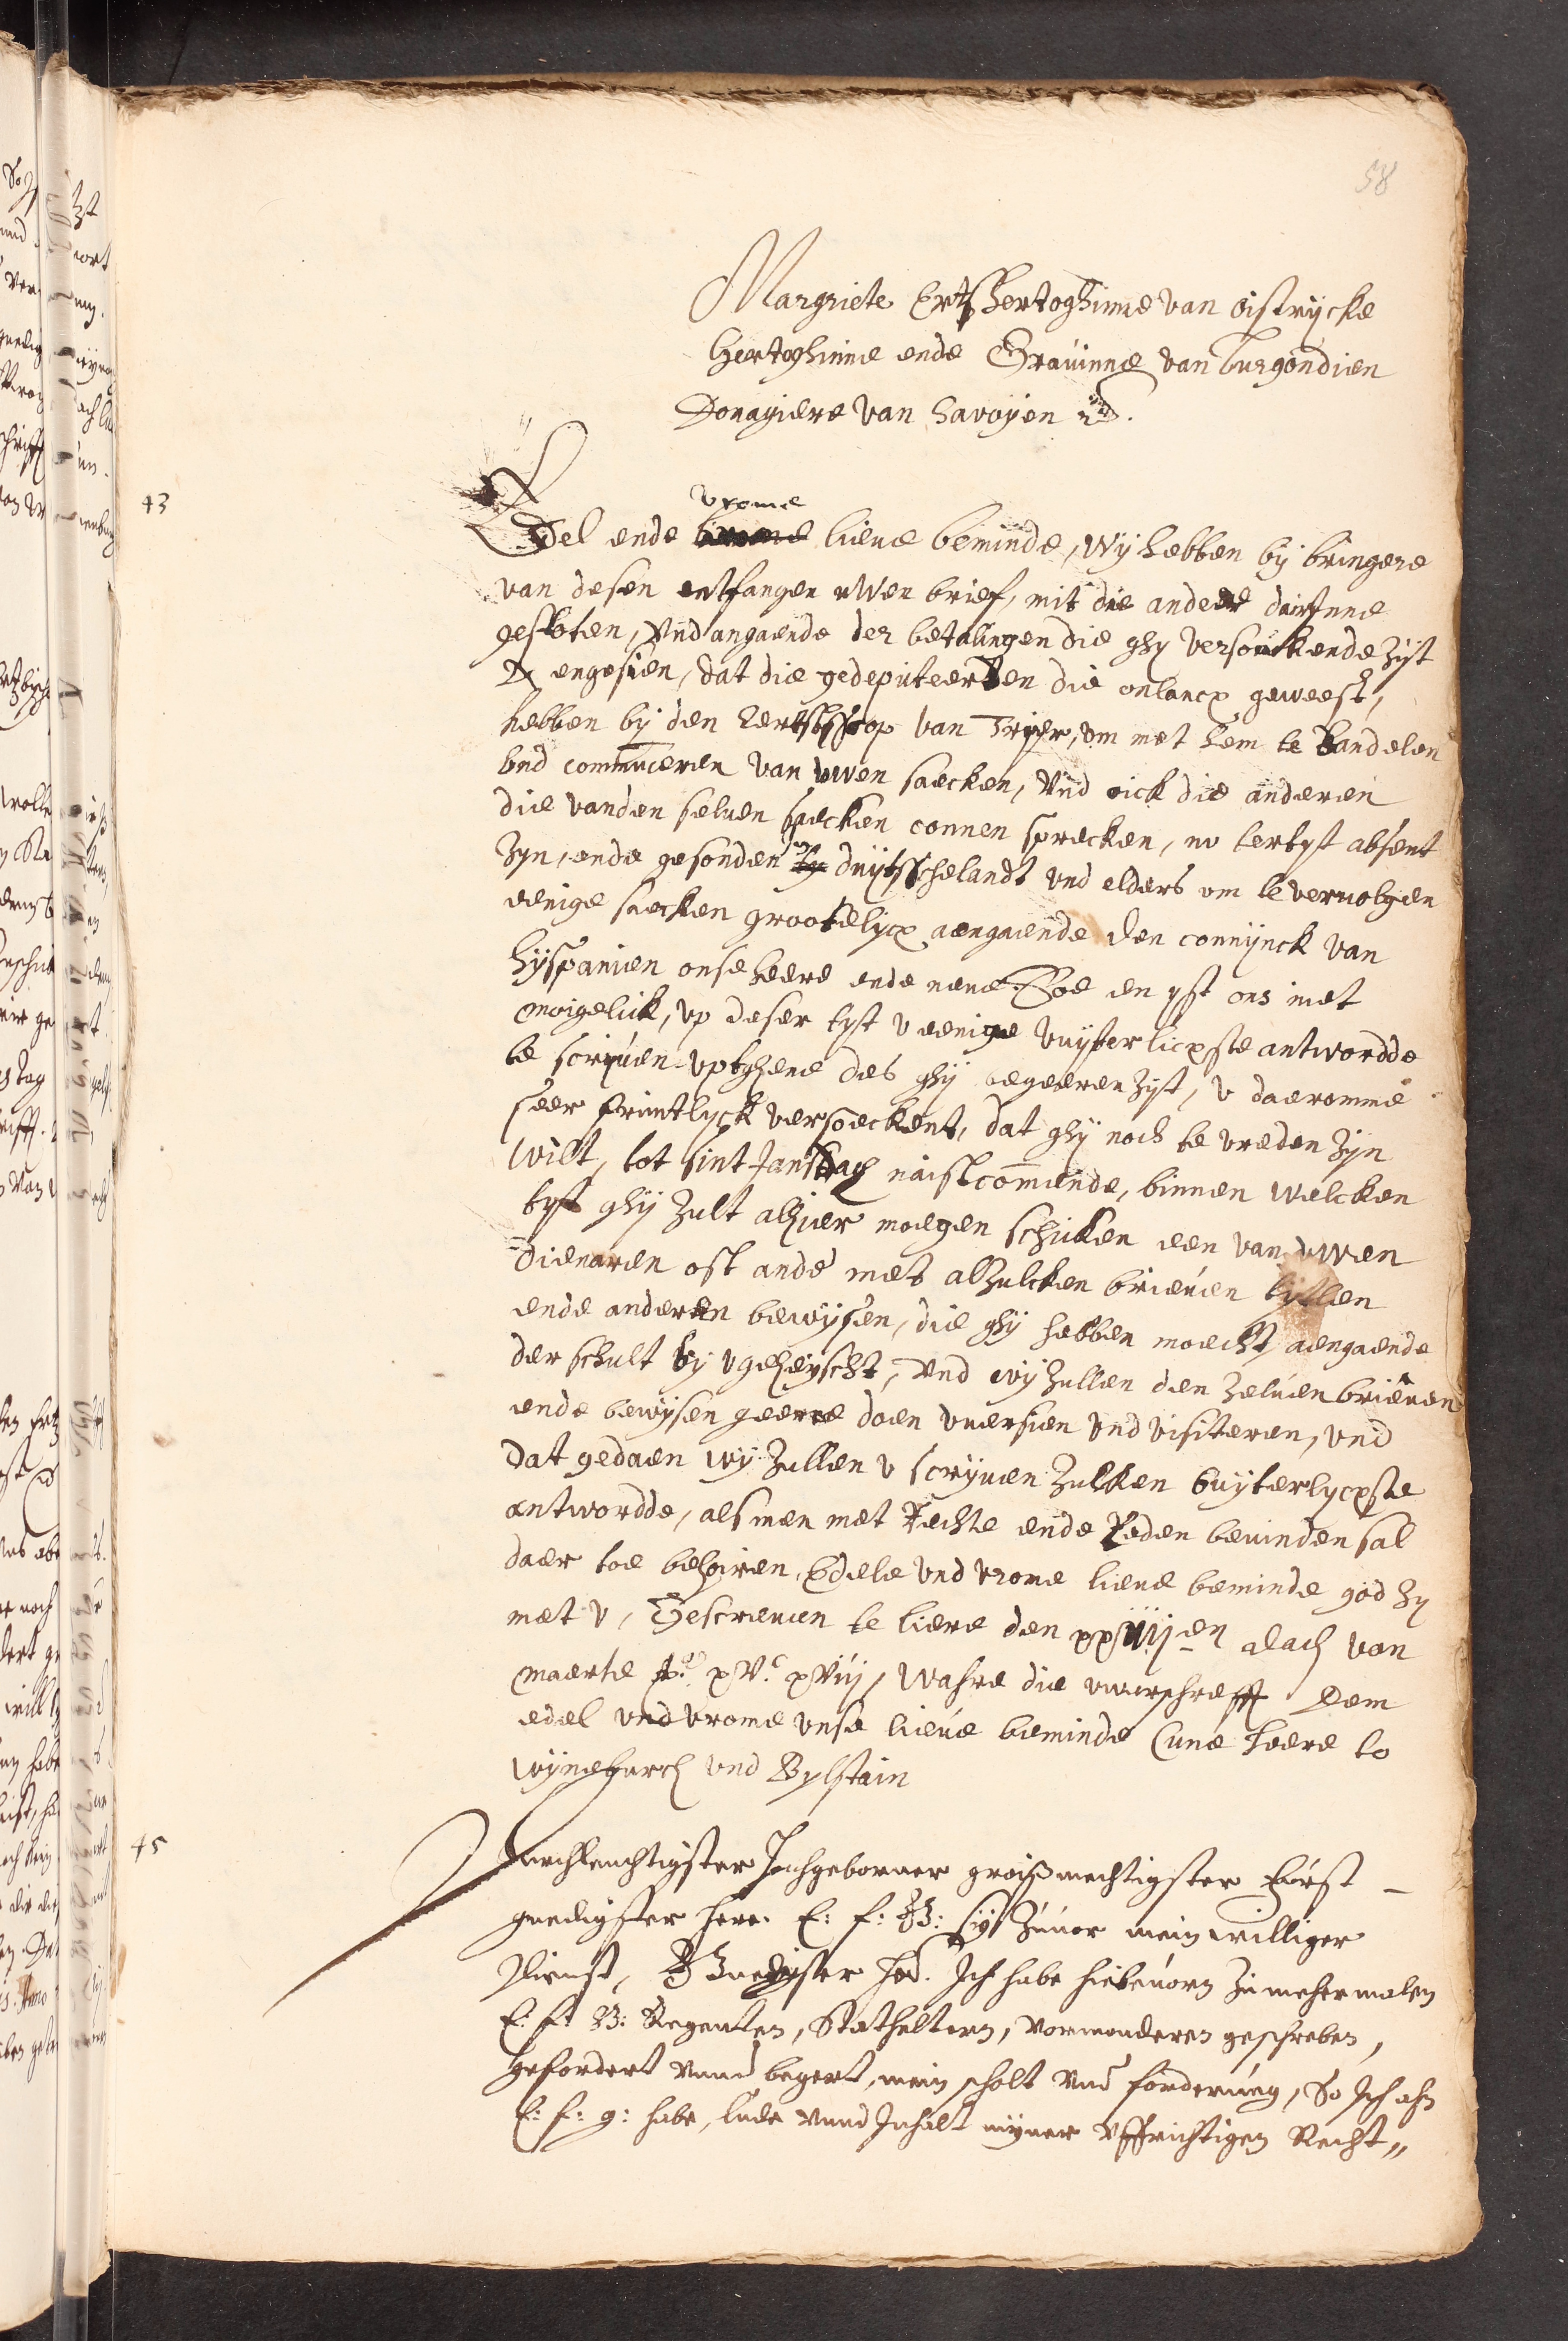 58
Margriete Ertzhertoghinne van Oistrijcke
Hertoghinne ende Grauinne van burgondien
Douagiere van Savoyen
43
vrome
Edel ende lieue beminde, wij hebben bij bringere
van desen entfangen uwen brief, mit die andere dairinne
gesloten, Vnd angaende der betalingen die ghy versouckende zijt
angesien, dat die gedeputeerden die onlancx geweest,
hebben bij den Eertzbisscop van Trijer, om met hem te handelen
vnd communiceren van uwen saecken, Vnd oick die anderen
die vanden seluen saecken connen sprecken, nv tertyt absent
zyn, ende gesonden duytsschelandt vnd elders om te veruolgen
eenige saecken grootelycx aengaende den connijnck van
hijspanien onse heere ende neue. Soe en yst ons niet
moigelick, vp deser tyt v eenige vuyterlicxste antwordde
te scriuen vptghene des ghij begeeren zyt, v daeromme
seer frintlyck versoeckent, dat ghij noch te vreden zijn
wilt, tot sint Jansdach naistcomende, binnen welcken
tyt ghij zult alhier moegen schicken een van uwen
dienaren oft ande mets alzulcken brieuen tytlen
ende anderen bewijsen, die ghij hebben moecht aengaende
der schult bij v geheyscht, Vnd wij zullen den zeluen brieuen
ende bewijsen geerne doen ouersien vnd visiteren, vnd
dat gedaen wij zullen v scrijuen zulken vuyterlycxste
antwordde, als men met Rechte ende Reden beuinden sal
daer toe behoiren, Edele vnd vrome lieue beminde god zy
met v, Gescreuen te liere den dach van
maerte xvc xviij, Wahre die vuerschrefft Dem
edel vnd vrome vnse lieue beminde Cune heere to
wijneburch vnd Bylstain
45
Durchleuchtigster Hochgeborner groißmechtigster Fürst
gnedigster Herr. E: F: G: sij zuuor mein williger
Dienst, Gnedigster her. Ich habe hiebeuorn zu mehermalen
E: F: G: Regenten, Stathaltern, vormonderen geschreben,
gefordert vnnd begert, mein scholt vnd forderung, So Ich ahn
E: F: g: habe, lude vnnd Inhalt myner vffrichtigen Recht„